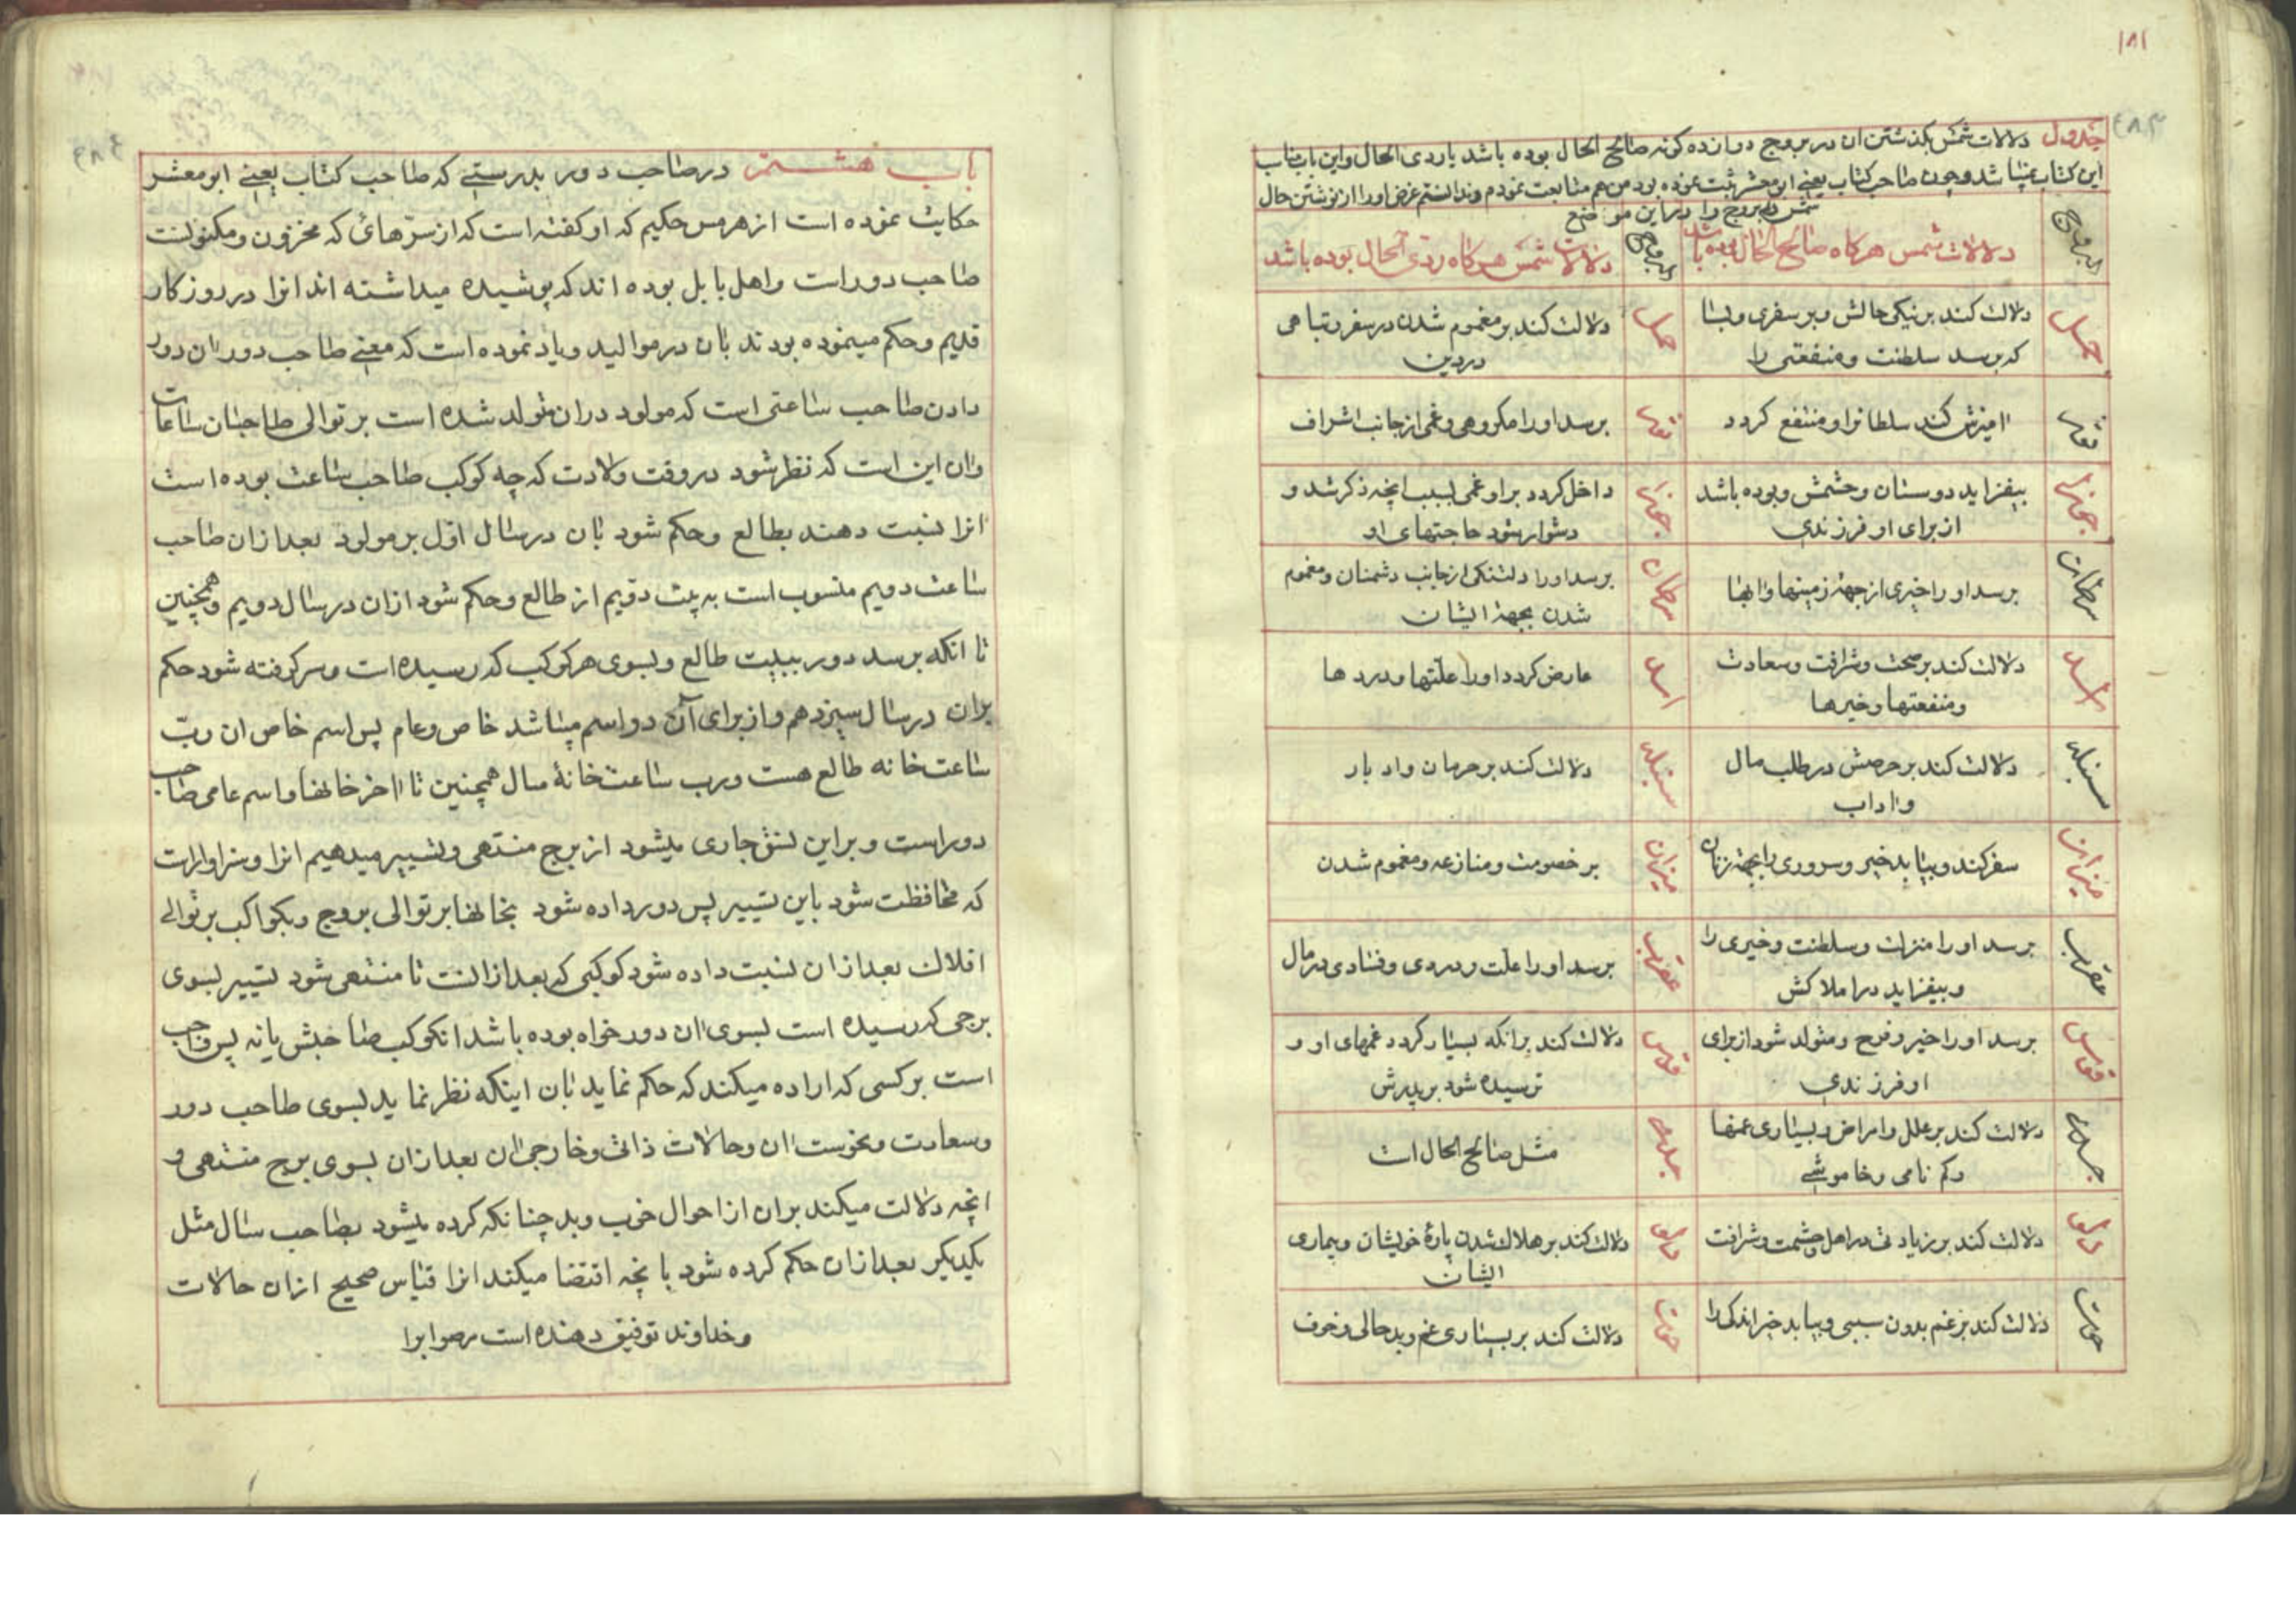 ۱۸۱
جدول دلالات شمس بکذشتن ان در بروج دوازده کونه صالح الحال بوده باشد یا ردی الحال و این باب مناسب
این کتاب نمیباشد و چون صاحب کتاب یعنی ابو معشر ثبت نموده بود من هم متابعت نمودم و ندانستم غرض او را از نوشتن حال
شمس در بروج را در این موضع
البروج
دلالات شمس هرکاه صالح الحال بوده باشد
البروج
دلالات شمس هرکاه ردی الحال بوده باشد
حمل
دلالت کند بر نیکی حالش و بر سفری و بسا
که برسد سلطنت و منفعتی را
حمل
دلالت کند بر مغموم شدن در سفر و تباهی
در دین
ثور
امیزش کند سلطانرا و منتفع کردد
ثور
برسد او را مکروهی و غمی از جانب اشراف
جوزا
بیفزاید دوستان و حشمش و بوده باشد
از برای او فرزندی
جوزا
داخل کردد بر او غمی بسبب انچه ذکر شد و
دشوار شود حاجتهای او
سرطان
برسد او را خیری از جهة زمینها و ابها
سرطان
برسد او را دلتنکی از جانب دشمنان و مغموم
شدن بجهة ایشان
اسد
دلالت کند بر صحت و شرافت و سعادت
و منفعتها و خیرها
اسد
عارض کردد او را علتها و دردها
سنبله
دلالت کند بر حرصش در طلب مال
و اداب
سنبله
دلالت کند بر حرمان و ادبار
میزان
سفر کند و بیابد خیر و سروری را بجهة زنان
میزان
بر خصومت و منازعه و مغموم شدن
عقرب
برسد او را منزلت و سلطنت و خیری را
و بیفزاید در املاکش
عقرب
برسد او را علت و دردی و فسادی در مال
قوس
برسد او را خیر و فرح و متولد شود از برای
او فرزندی
قوس
دلالت کند برانکه بسیار کردد غمهای او و
ترسیده شود بر پدرش
جدی
دلالت کند بر علل و امراض و بسیاری غمها
و کم نامی و خاموشی
جدی
مثل صالح الحال است
دلو
دلالت کند بر زیادتی در اهل و حشمت و شرافت
دلو
دلالت کند بر هلاک شدن پارهٔ خویشان و بیماری
ایشان
حوت
دلالت کند بر غم بدون سببی و بیابد خیر اندکی را
حوت
دلالت کند بر بسیاری غم و بدحالی و خوف
باب هشتم در صاحب دور بدرستی که صاحب کتاب یعنی ابو معشر
حکایت نموده است از هرمس حکیم که او کفته است که از سرهائی که مخزون و مکنونست
صاحب دور است و اهل بابل بوده اند که پوشیده میداشته اند انرا در روزکار
قدیم و حکم مینموده بودند بان در موالید و یاد نموده است که معنی صاحب دور ان دور
دادن صاحب ساعتی است که مولود دران متولد شده است بر توالی صاحبان ساعات
و ان این است که نظر شود در وقت ولادت که چه کوکب صاحب ساعت بوده است
انرا نسبت دهند بطالع و حکم شود بان در سال اول بر مولود بعد ازان صاحب
ساعت دویم منسوب است به بیت دویم از طالع و حکم شود ازان در سال دویم و همچنین
تا انکه برسد دور ببیت طالع و بسوی هر کوکب که رسیده است و سر کرفته شود حکم
بران در سال سیزدهم و از برای آن دو اسم میباشد خاص و عام پس اسم خاص ان رب
ساعت خانه طالع هست و رب ساعت خانهٔ مال همچنین تا اخر خانها و اسم عامی صاحب
دور است و بر این نسق جاری میشود از برج منتهی و تسییر میدهیم انرا و سزاوار است
که محافظت شود باین تسییر پس دور داده شود بخانها بر توالی بروج و بکواکب بر توالی
افلاک بعد ازان نسبت داده شود کوکبی که بعد از انست تا منتهی شود تسییر بسوی
برجی که رسیده است بسوی ان دور خواه بوده باشد انکوکب صاحبش یا نه پس واجب
است بر کسی که اراده میکند که حکم نماید بان اینکه نظر نماید بسوی صاحب دور
و سعادت و نحوست ان و حالات ذاتی و خارجی ان بعد ازان بسوی برج منتهی و
انچه دلالت میکند بران از احوال خوب و بد چنانکه کرده میشود بصاحب سال مثل
یکدیکر بعد ازان حکم کرده شود بانچه اقتضا میکند انرا قیاس صحیح ازان حالات
و خداوند توفیق دهنده است مر صوابرا